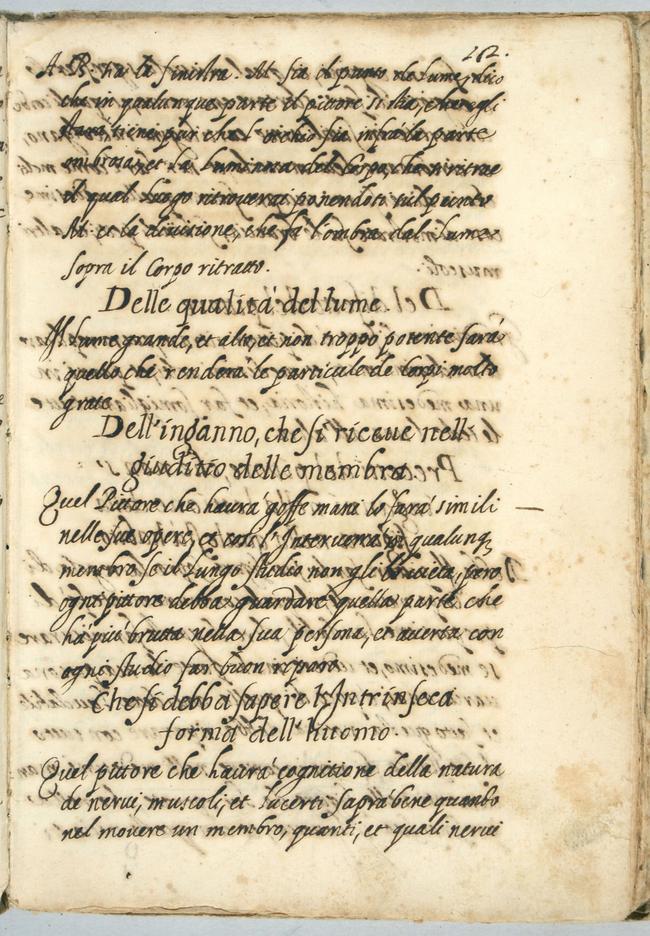 162.
A. B. fia la sinistra. M. sia il punto de lume, dico
che in qualunque parte il pittore si stia, che egli
stara bene pur che l'ochio sia infrà la parte
ombrosa, et la luminosa del Corpo, che si ritrae
il qual luogo ritroverai ponendoti sul punto
M. et la divisione, che fa l'ombra dal lume
sopra il Corpo ritratto.
Delle qualità del lume.
Il lume grande, et alto, et non troppo potente sarà
quello che renderà le particule de Corpi molto
grate
Dell'inganno, che si riceve nell
giuditio delle membra.
Quel Pittore che haurà goffe mani lo farà simili
nelle sue opere, et così l'Interverrà in qualunq
membro se il lungo studio non gli lo vieta, però
ogni pittore debba guardare quella parte che
hà più brutta nella sua persona, et averta con
ogni studio far buon riparo
Che si debba sapere l'Intrinseca
forma dell'huomo
Quel pittore che haurà cognitione della natura
de nervi, muscoli, et lucerti saprà bene quando
nel movere un membro, quanti, et quali nervi